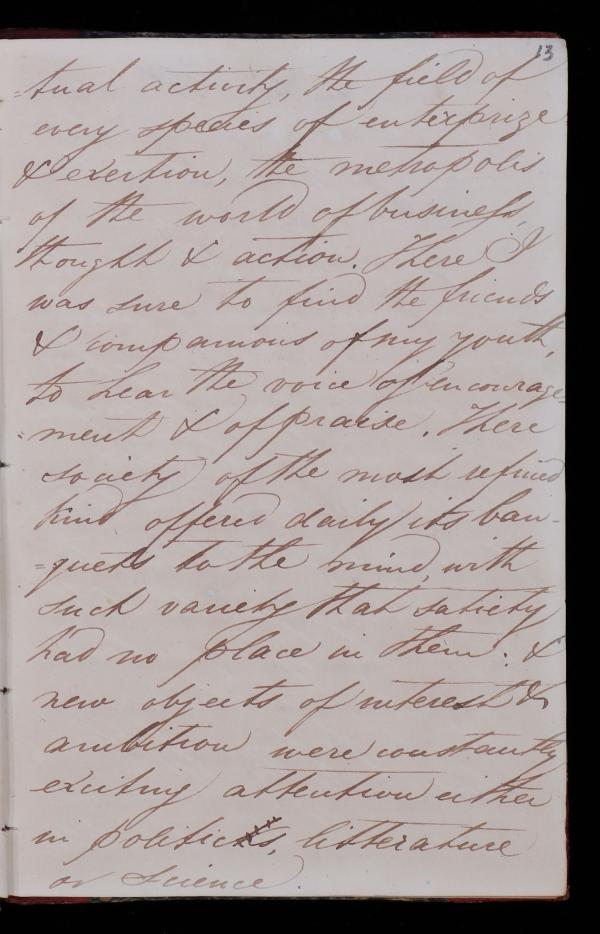 13
=tual activity, the field of
every species of enterprize
& exertion, the metropolis
of the world of business,
thought & action. There I
was sure to find the friends
& companions of my youth,
to hear the voice of encourage=
=ment & of praise. There
society of the most refined
kind offered daily its ban-
=quets to the mind, with
such variety that satiety
had no place in them: &
new objects of interest &
ambition were constantly
exciting attention either
in politics, litterature
or science.